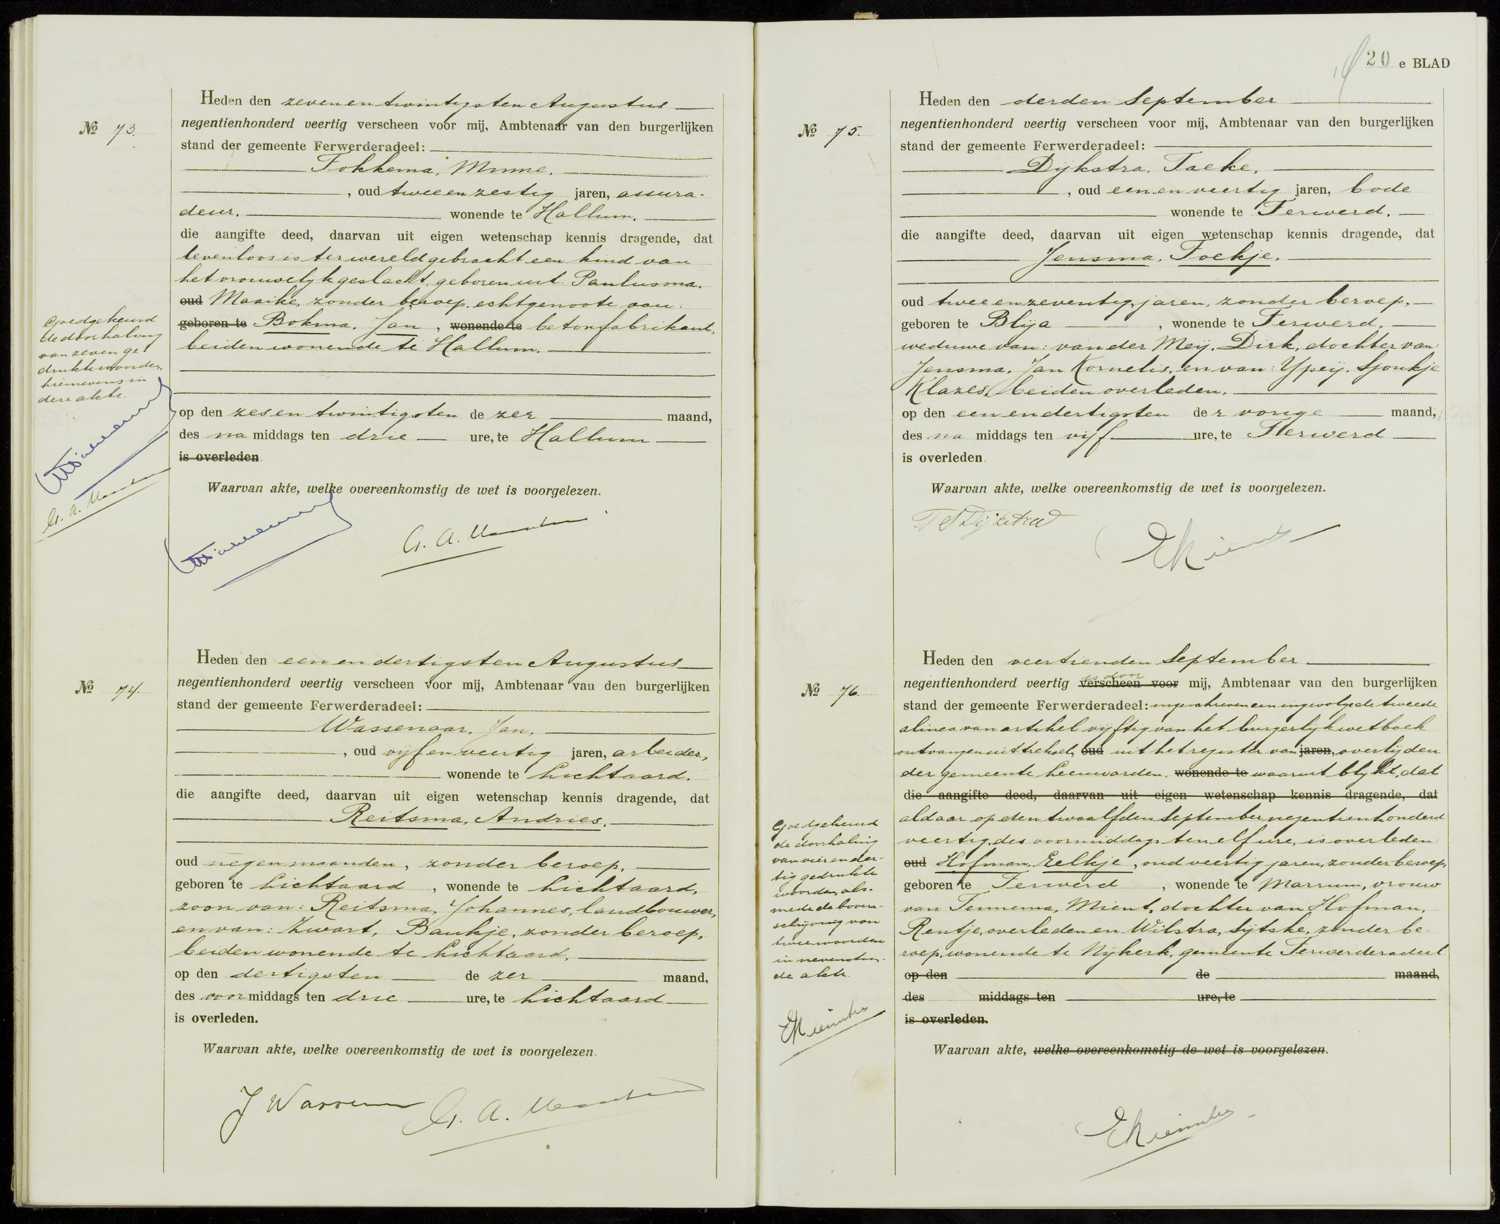 Heden den zevenentwintigsten Augustus
№ 73.
negentienhonderd veertig verscheen voor mij, Ambtenaar van den burgerlijken
stand der gemeente Ferwerderadeel:
Fokkema, Minne.
, oud tweeenzestig jaren, assura-
deur. wonende te Hallum.
die aangifte deed, daarvan uit eigen wetenschap kennis dragende, dat
levenloos is ter wereld gebracht een kind van
het vrouwelijk geslacht, geboren uit Paulusma.
oud Maaike, zonder beroep, echtgenoote van:
geboren te Bokma. Jan, wonende te betonfabrikant,
beiden wonende te Hallum.
op den zesentwintigsten de zer maand,
des na middags ten drie ure, te Hallum
is overleden.
Goedgekeurd
de doorhaling
van zeven ge-
drukte woorden
hiernevens in
deze akte.
Waarvan akte, welke overeenkomstig de wet is voorgelezen.
Heden den eenendertigsten Augustus
№ 74
negentienhonderd veertig verscheen voor mij, Ambtenaar van den burgerlijken
stand der gemeente Ferwerderadeel:
Wassenaar, Jan.
, oud vijfenveertig jaren, arbeider,
wonende te Lichtaard.
die aangifte deed, daarvan uit eigen wetenschap kennis dragende, dat
Reitsma, Andries.
oud negen maanden, zonder beroep,
geboren te Lichtaard, wonende te Lichtaard,
zoon van: Reitsma, Johannes, landbouwer,
en van: Zwart, Baukje, zonder beroep,
beiden wonende te Lichtaard.
op den dertigsten de zer maand,
des voor middags ten drie ure, te Lichtaard
is overleden.
Waarvan akte, welke overeenkomstig de wet is voorgelezen.
J Wassenaar
20 e BLAD
Heden den derden September
№ 75.
negentienhonderd veertig verscheen voor mij, Ambtenaar van den burgerlijken
stand der gemeente Ferwerderadeel:
Dijkstra, Taeke,
, oud eenenveertig jaren, bode
wonende te Ferwerd.
die aangifte deed, daarvan uit eigen wetenschap kennis dragende, dat
Jensma, Foekje.
oud tweeenzeventig jaren, zonder beroep,
geboren te Blija, wonende te Ferwerd.
weduwe van: van der Meij, Dirk, dochter van
Jensma. Jan Kornelis, en van: Ypeij. Sjoukje
Klazes, beiden overleden.
op den eenendertigsten der vorige maand,
des na middags ten vijf ure, te Ferwerd
is overleden.
Waarvan akte, welke overeenkomstig de wet is voorgelezen.
T Dijkstra
Heden den veertienden September
№ 76.
is door
negentienhonderd veertig verscheen voor mij, Ambtenaar van den burgerlijken
stand der gemeente Ferwerderadeel: ingeschreven een ingevolge de tweede
alinea van artikel vijftig van het burgerlijk wetboek
ontvangen uittreksel, oud uit het register van jaren, overlijden
der gemeente Leeuwarden. wonende te waaruit blijkt, dat
die aangifte deed, daarvan uit eigen wetenschap kennis dragende, dat
aldaar op den twaalfden September negentienhonderd
veertig, des voormiddags ten elf ure, is overleden
oud Hofman, Eelkje, oud veertig jaren, zonder beroep,
geboren te Ferwerd, wonende te Marrum, vrouw
van Tennema, Mient, dochter van Hofman,
Rentje, overleden en Wilstra, Sytske, zonder be-
roep, wonende te Nijkerk, gemeente Ferwerderadeel
op den de maand,
des middags ten ure, te
is overleden.
Goedgekeurd
de doorhaling
van vier en der-
tig gedrukte
woorden, als-
mede de boven-
schrijving van
twee woorden
in nevenstaan-
de akte.
Waarvan akte, welke overeenkomstig de wet is voorgelezen.